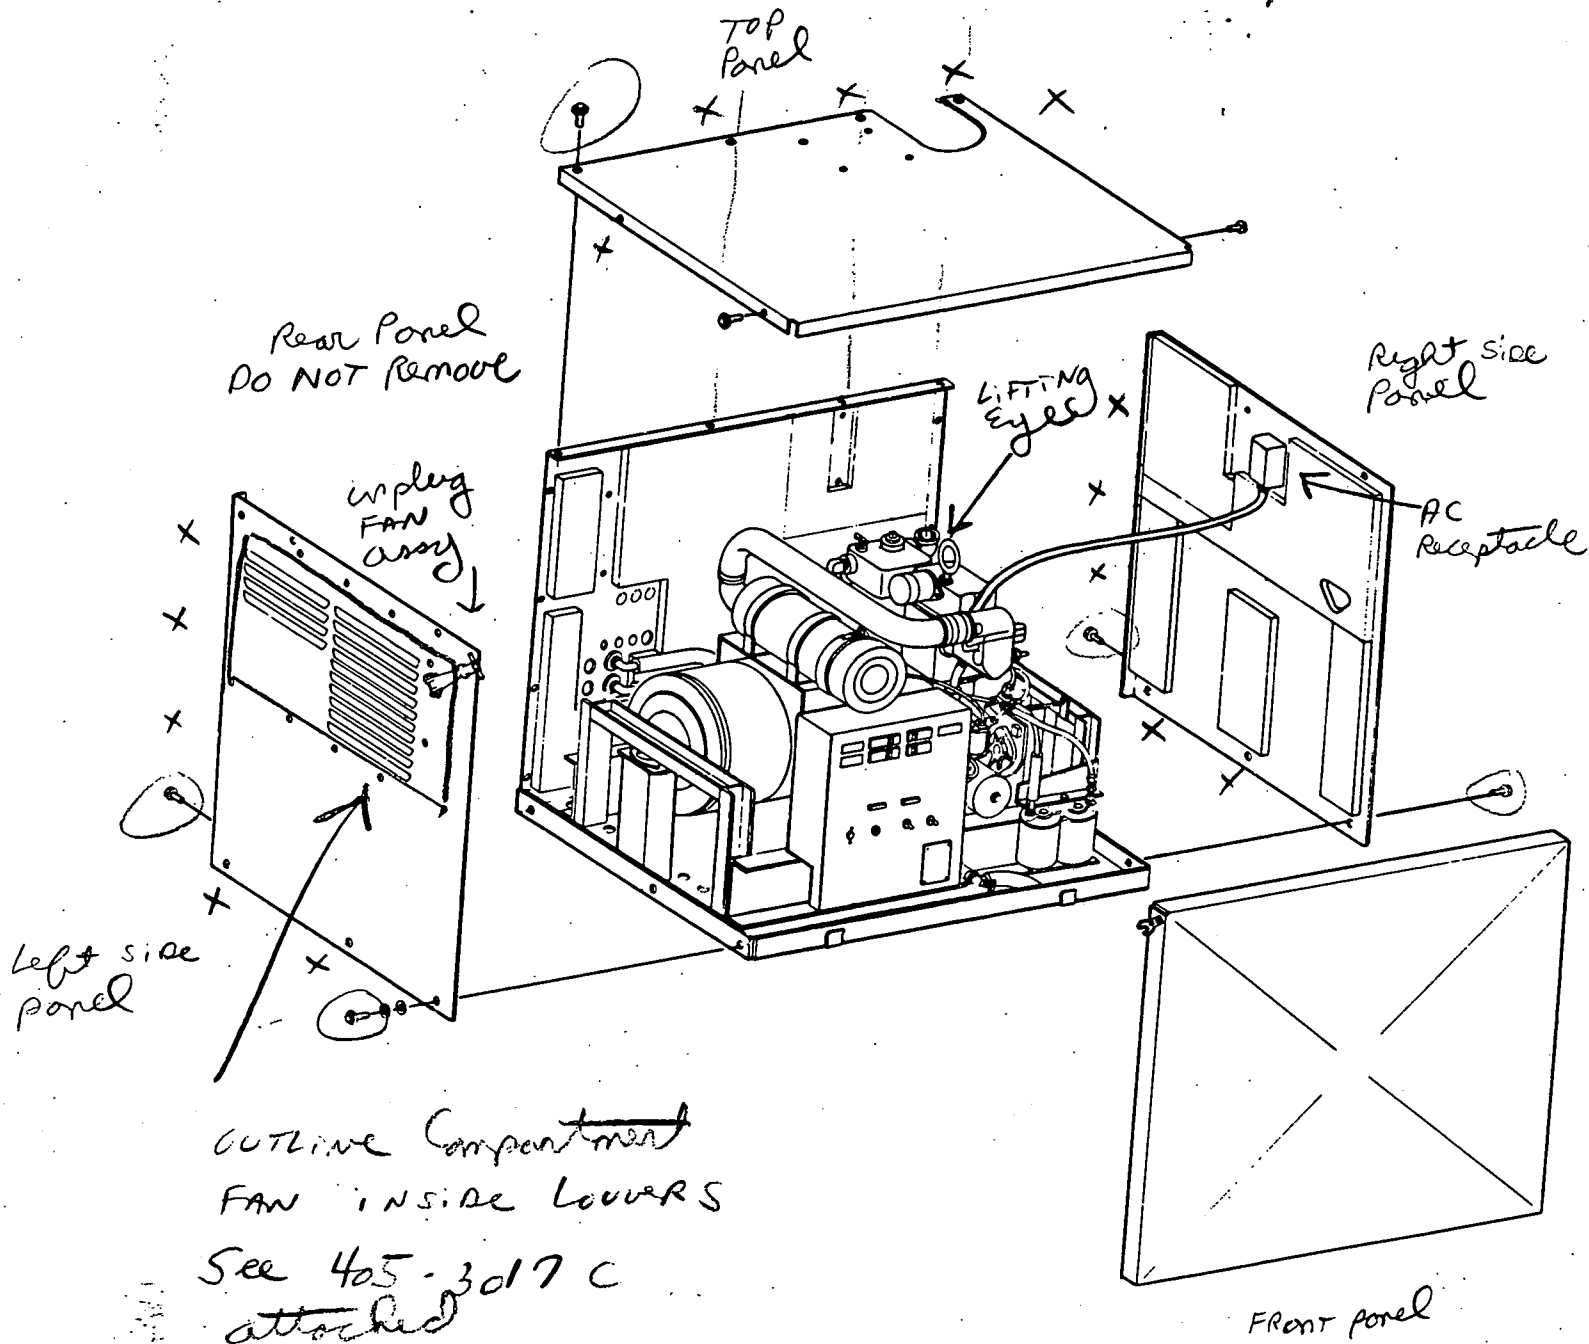 TOP
Panel
Rear Panel
DO NOT Remove
LiFTiNG
Eyes
Right Side
Panel
unplug
FAN
assy
AC
Receptacle
Left Side
panel
OUTLiNE Compartment
FAN iNSiDE LOUVERS
See 405-3017 C
attached
FRONT panel